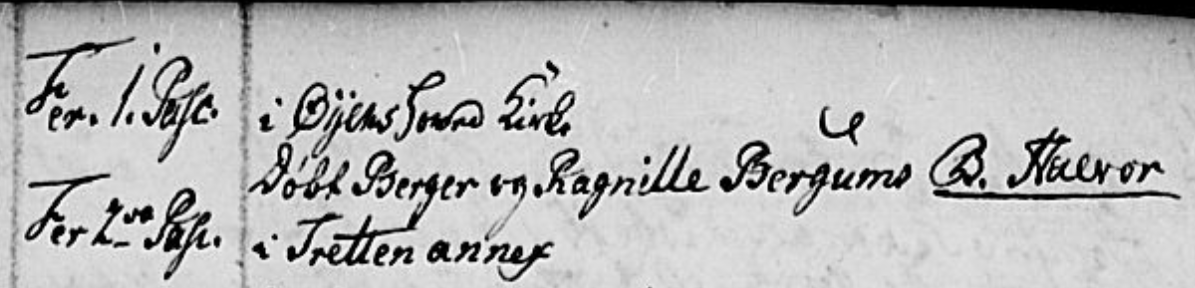 Fer. 1. Pasc. i Øÿens Hoved Kirk.
Døbt Berger og Ragnille Bergums B. Halvor
Fer 2da Pasc. i Tretten annex